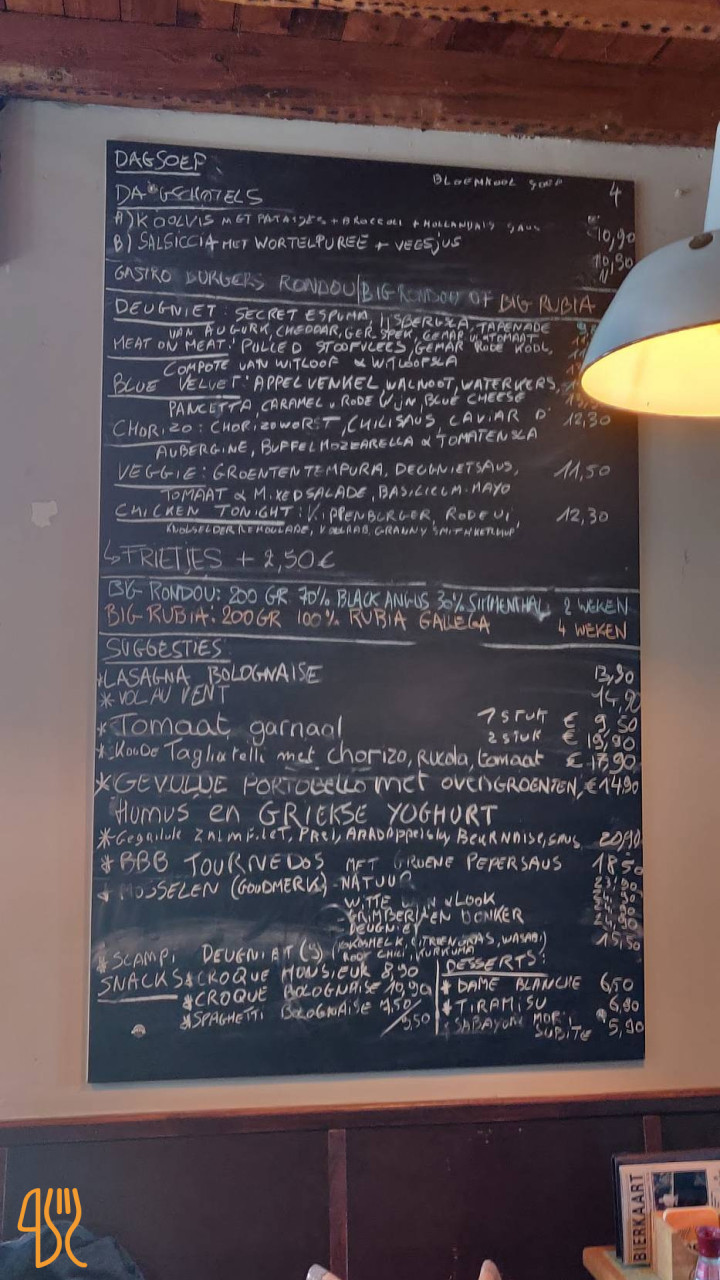 DAGSOEP
BLOEMKOOL SOEP 4
DAGSCHOTELS
A) KOOLVIS MET PATATJES + BROCCOLI + HOLLANDAIS SAUS 10,90
B) SALSICCIA MET WORTELPUREE + VEGSJUS 10,90
GASTRO BURGERS RONDOU BIG RONDOU OF BIG RUBIA
DEUGNIET: SECRET ESPUMA, IJSBERGSLA, TAPENADE
VAN AUGURK, CHEDDAR, GER. SPEK, GEMAR. UI & TOMAAT
MEAT ON MEAT: PULLED STOOFVLEES, GEMAR RODE KOOL,
COMPOTE VAN WITLOOF & WITLOFSLA
BLUE VELVET: APPEL VENKEL, WALNOOT, WATERKERS,
PANCETTA, CARAMEL v RODE WIJN, BLUE CHEESE
CHORIZO: CHORIZOWORST, CHILISAUS, CAVIAR D' 12,30
AUBERGINE, BUFFELMOZZARELLA & TOMATENSLA
VEGGIE: GROENTENTEMPURA, DEUGNIETSAUS, 11,50
TOMAAT & MIXEDSALADE, BASILICUM MAYO
CHICKEN TONIGHT: KIPPENBURGER, RODE UI, 12,30
KNOLSELDERREMOULADE, KOOLRAB, GRANNY SMITH KETCHUP
↳ FRIETJES + 2,50€
BIG RONDOU: 200 GR 70% BLACK ANGUS 30% SIMMENTHAL 2 WEKEN
BIG RUBIA: 200GR 100% RUBIA GALLEGA 4 WEKEN
SUGGESTIES
*LASAGNA BOLOGNAISE 13,90
*VOL AU VENT 14,90
*Tomaat garnaal 1 STUK € 9,50
2 STUK € 19,90
*Koude Tagliatelli met chorizo, Rucola, tomaat € 17,90
*GEVULDE PORTOBELLO met ovenGROENTEN, €14,90
HUMUS en GRIEKSE YOGHURT
*Gegrilde ZALMFILET, PREI, AARDAPPELSLY BEURNAISE, SAUS 20,90
*BBB TOURNEDOS MET GROENE PEPERSAUS 18,50
*MOSSELEN (GOUDMERK) - NATUUR
WITTE WIJN & LOOK
GRIMBERGEN DONKER
DEUGNIET
(KOKOSMELK, CITROENGRAS, WASABI)
ROOD CHILI, KURKUMA
*SCAMPI DEUGNIAT (9) 15,50
SNACKS *CROQUE MONSIEUR 8,90
*CROQUE BOLOGNAISE 10,90
*SPAGHETTI BOLOGNAISE 7,50/9,50
DESSERTS:
*DAME BLANCHE 6,50
*TIRAMISU 6,90
*SABAYON MORT SUBITE 5,90
BIERKAART